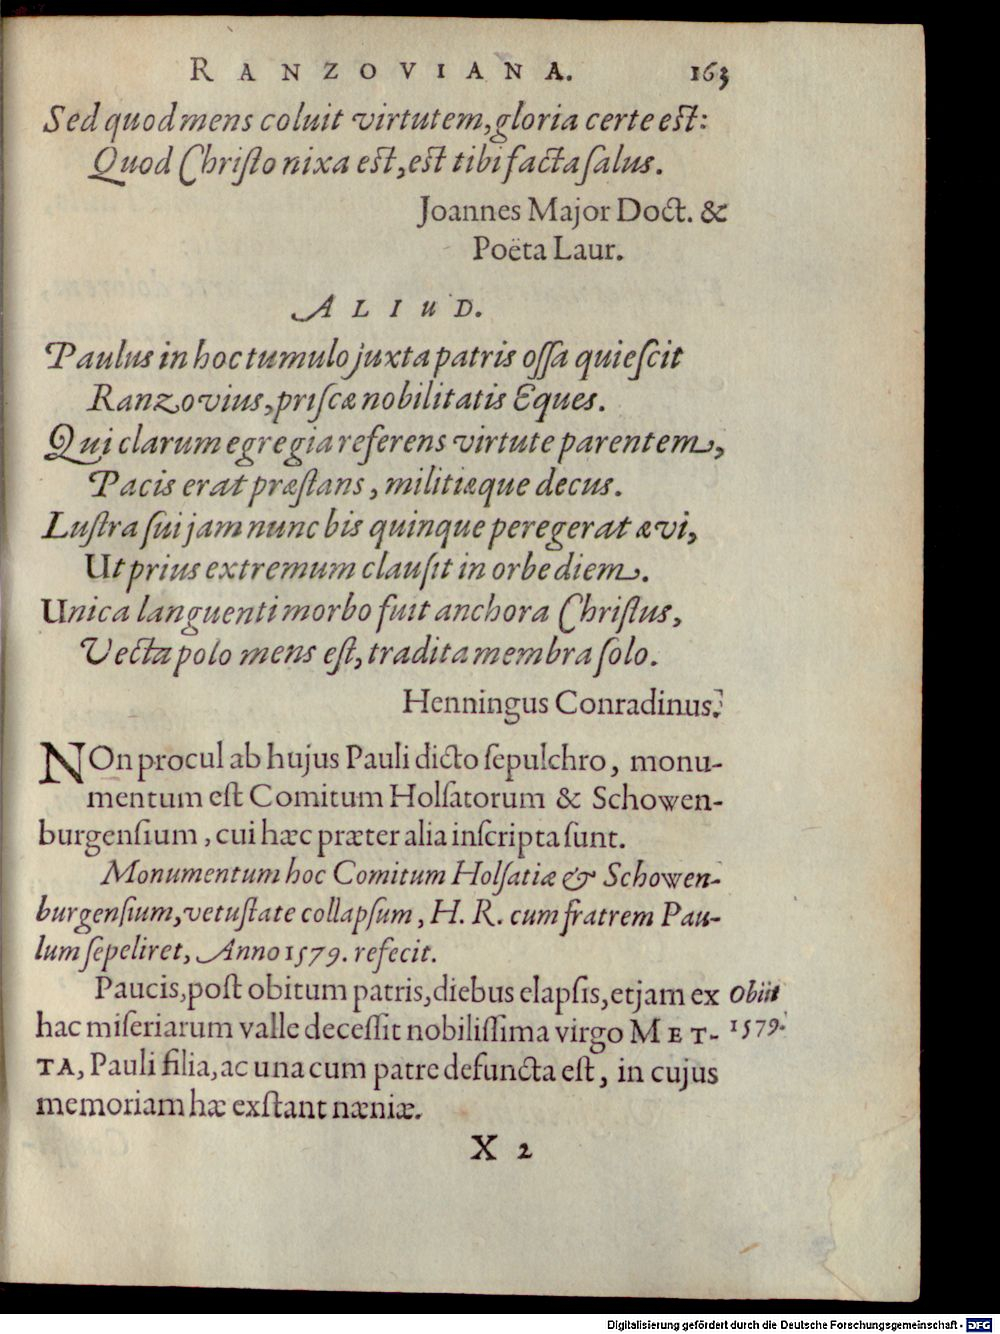 RANZOVIANA. 163
Sed quod mens coluit virtutem, gloria certe est:
Quod Christo nixa est, est tibi facta salus.
Joannes Major Doct. &
Poëta Laur.
ALIuD.
Paulus in hoc tumulo juxta patris ossa quiescit
Ranzovius, priscæ nobilitatis Eques.
Qui clarum egregia referens virtute parentem,
Pacis erat præstans, militiæque decus.
Lustra sui jam nunc bis quinque peregerat ævi,
Ut prius extremum clausit in orbe diem.
Unica languenti morbo fuit anchora Christus,
Vecta polo mens est, tradita membra solo.
Henningus Conradinus.
NOn procul ab hujus Pauli dicto sepulchro, monu-
mentum est Comitum Holsatorum & Schowen-
burgensium, cui hæc præter alia inscripta sunt.
Monumentum hoc Comitum Holsatiæ & Schowen-
burgensium, vetustate collapsum, H. R. cum fratrem Pau-
lum sepeliret, Anno 1579. refecit.
Paucis, post obitum patris, diebus elapsis, etjam ex
hac miseriarum valle decessit nobilissima virgo MET-
TA, Pauli filia, ac una cum patre defuncta est, in cujus
memoriam hæ exstant næniæ.
Obiit
1579.
X 2
Digitalisierung gefördert durch die Deutsche Forschungsgemeinschaft - DFG